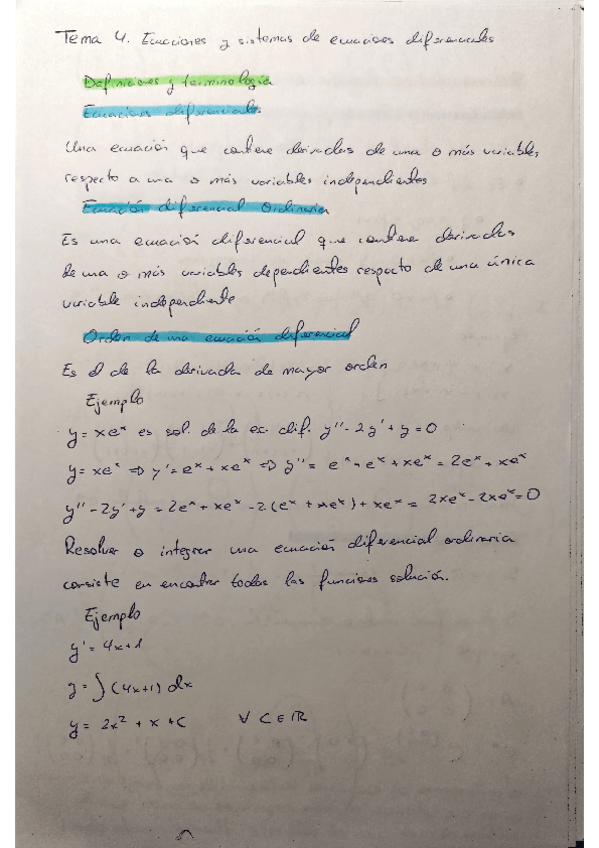 Tema 4. Ecuaciones y sistemas de ecuaciones diferenciales
Definiciones y terminología
Ecuaciones diferenciales
Una ecuación que contiene derivadas de una o más variables,
respecto a una o más variables independientes
Ecuación diferencial Ordinaria
Es una ecuación diferencial que contiene derivadas
de una o más variables dependientes respecto de una única
variable independiente
Orden de una ecuación diferencial
Es el de la derivada de mayor orden
Ejemplo
y = xeˣ es sol. de la ec. dif. y'' - 2y' + y = 0
y = xeˣ => y' = eˣ + xeˣ => y'' = eˣ + eˣ + xeˣ = 2eˣ + xeˣ
y'' - 2y' + y = 2eˣ + xeˣ - 2·(eˣ + xeˣ) + xeˣ = 2xeˣ - 2xeˣ = 0
Resolver o integrar una ecuación diferencial ordinaria
consiste en encontrar todas las funciones solución.
Ejemplo
y' = 4x+1
y = ∫(4x+1) dx
y = 2x² + x + C ∀ C ∈ ℝ